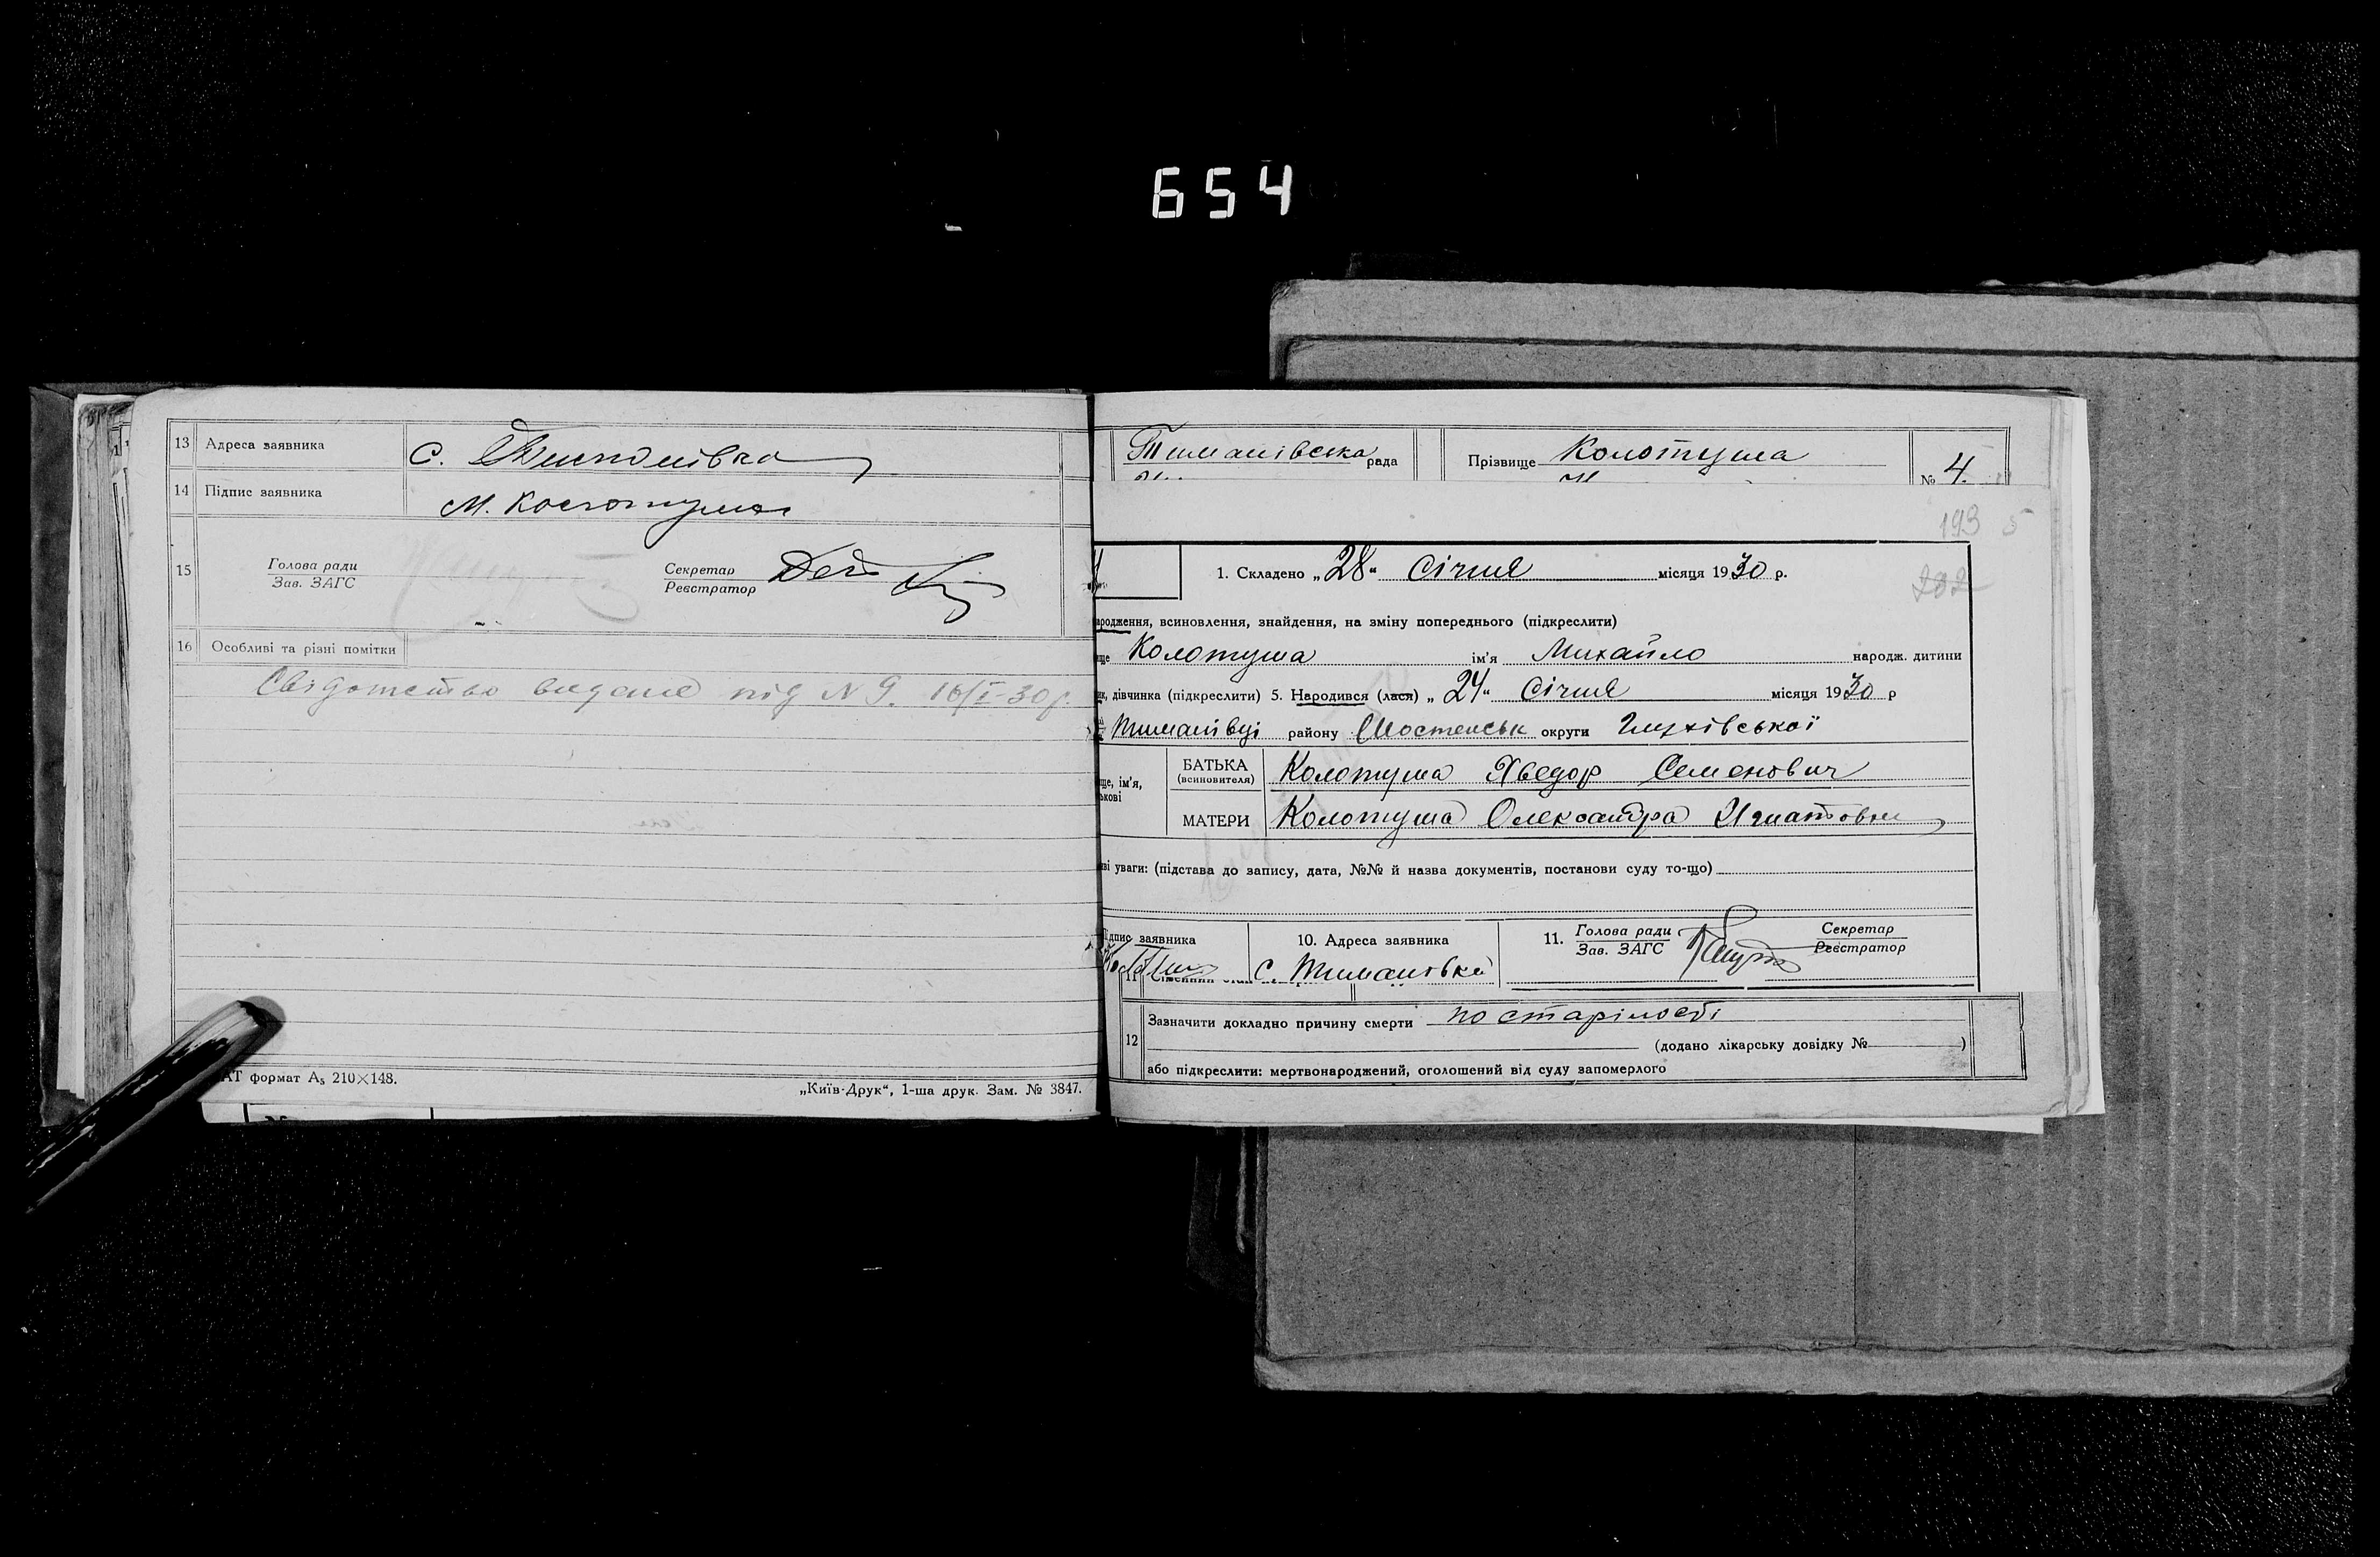 654
13 Адреса заявника с. Тиманівка
14 Підпис заявника М. Колотуша
15 Голова ради Секретар
Зав. ЗАГС Реєстратор
16 Особливі та різні помітки
Свідотство видане під N 9. 16/I-30 р.
АТ формат А₅ 210×148.
„Київ-Друк“, 1-ша друк. Зам. № 3847.
Тиманівська рада Прізвище Колотуша № 4.
193 5
202
1. Складено „28“ Січня місяця 1930 р.
ародження, всиновлення, знайдення, на зміну попереднього (підкреслити)
ще Колотуша ім'я Михайло народж. дитини
ик, дівчинка (підкреслити) 5. Народився (лася) „24“ Січня місяця 1930 р
Тиманівці району Шостенськ округи Глухівської
ще, ім'я,
ькові
БАТЬКА
(всиновителя) Колотуша Хведор Семенович
МАТЕРИ Колотуша Олександра Игнатовна
ві уваги: (підстава до запису, дата, №№ й назва документів, постанови суду то-що)
ідпис заявника 10. Адреса заявника 11. Голова ради Секретар
Зав. ЗАГС Реєстратор
с. Тиманівка
11
12 Зазначити докладно причину смерти по старілості
(додано лікарську довідку № )
або підкреслити: мертвонароджений, оголошений від суду запомерлого